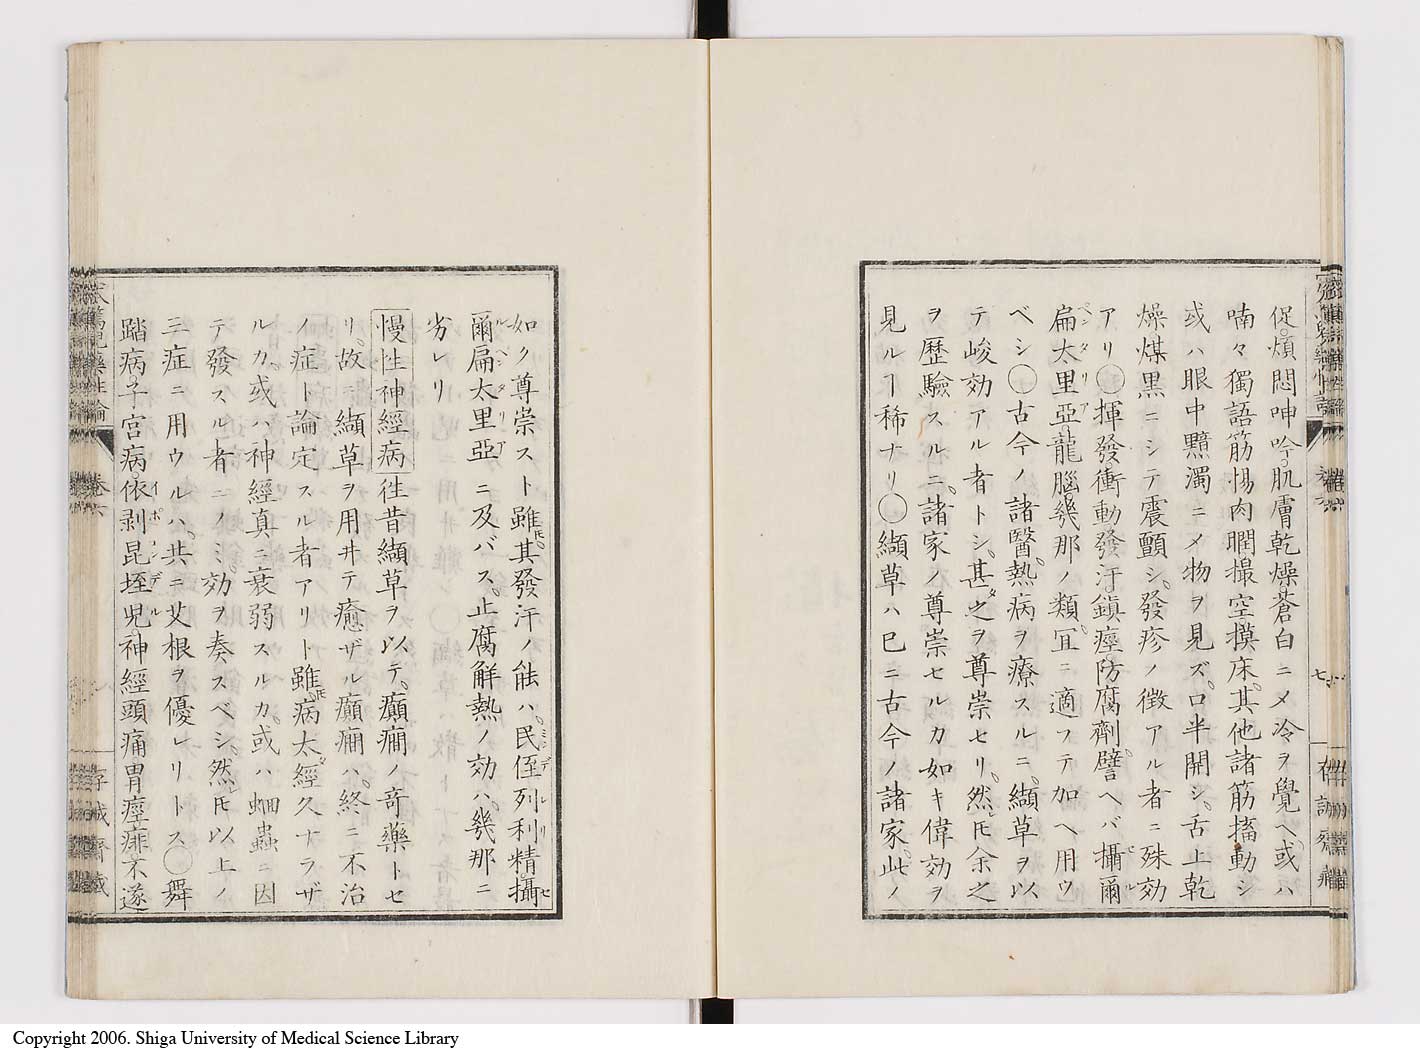 促煩悶呻吟。肌膚乾燥蒼白ニメ冷ヲ覺ヘ。或ハ
喃々獨語筋惕肉瞤撮空摸床。其他諸筋搐動シ
或ハ眼中黯濁ニメ物ヲ見ズ。口半開シ。舌上乾
燥煤黒ニシテ震顫シ。發疹ノ徴アル者ニ殊効
アリ○揮發衝動發汗鎭痙防腐劑。譬ヘバ攝爾
扁太里亞。龍腦幾那ノ類。冝ニ適フテ加ヘ用ウ
ベシ○古今ノ諸醫。熱病ヲ療スルニ。纈草ヲ以
テ峻効アル者トシ。甚タ之ヲ尊崇セリ。然レ𪜈余之
ヲ歷驗スルニ。諸家ノ尊崇セルカ如キ偉効ヲ
見ルヿ稀ナリ○纈草ハ已ニ古今ノ諸家。此ノ
如ク尊崇スト雖𪜈。其發汗ノ能ハ。民侄列利精。攝
爾扁太里亞ニ及バス。止腐解熱ノ効ハ。幾那ニ
劣レリ
慢性神經病 徃昔纈草ヲ以テ。癲癇ノ奇藥トセ
リ。故ニ纈草ヲ用井テ癒ザル癲癇ハ。終ニ不治
ノ症ト論定スル者アリト雖𪜈。病太タ經久ナラザ
ルカ。或ハ神經真ニ衰弱スルカ。或ハ蛔蟲ニ因
テ發スル者ニノミ効ヲ奏スベシ。然𪜈以上ノ
三症ニ用ウルハ。共ニ艾根ヲ優レリトス○舞
踏病子宮病。依剥昆垤児。神經頭痛胃痙痱不遂
卷六
存誠齋藏